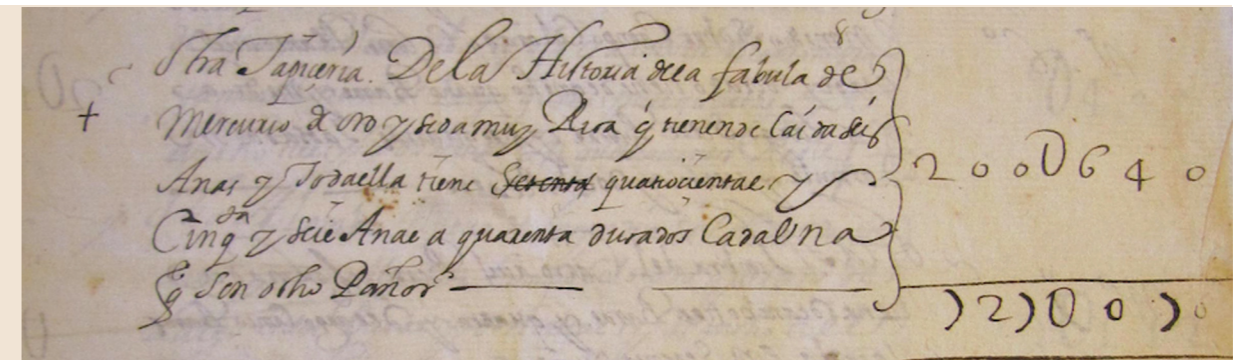 Otra Tapiceria. De La Historia de la fabula de
Mercurio de oro y seda muy Rica q̃ tienen de Caida seis
Anas y Toda ella tiene Setenta quatrocientas y
Cinq.ta y seis Anas a quarenta ducados Cada Una
q̃ son ocho Paños
200U640